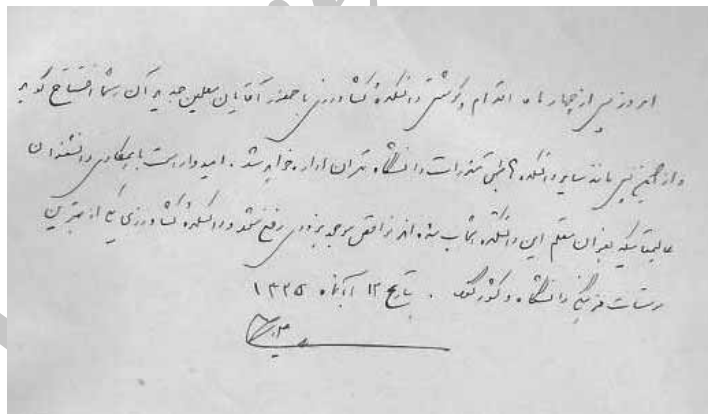 امروز پس از چهار ماه اقدام و کوشش دانشکده کشاورزی با حضور آقایان معلمین جدید آن رسماً افتتاح گردید
و از همین پس مانند سایر دانشکده‌ها طبق مقررات دانشگاه تهران اداره خواهد شد . امیدوار است با همکاری دانشمندان
عالیمقامیکه بعنوان معلم این دانشکده انتخاب شده‌اند نواقص موجود بزودی رفع شود و دانشکده کشاورزی یکی از بهترین
مؤسسات فرهنگی دانشگاه و کشور گردد . بتاریخ ۱۲ آبانماه ۱۳۲۵